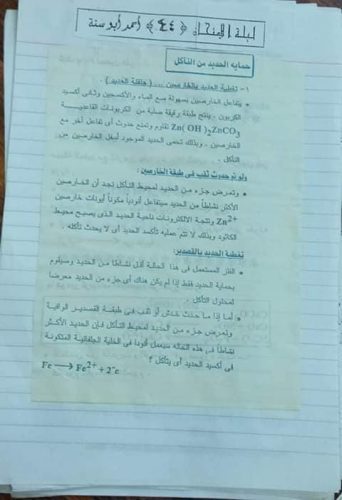 ليلة الامتحان ﴿٤٤﴾ أحمد أبو سنة
حماية الحديد من التآكل
١- تغطية الحديد بالخارصين ... ( جلفنة الحديد )
• يتفاعل الخارصين بسهولة مع الماء والأكسجين وثانى أكسيد
الكربون . ينتج طبقة رقيقة صلبة من الكربونات القاعدية
Zn( OH )2ZnCO3 تقاوم وتمنع حدوث أى تفاعل آخر مع
الخارصين .. وبذلك تحمى الحديد الموجود أسفل الخارصين من
التآكل .
ولو تم حدوث ثقب فى طبقة الخارصين:
• وتعرض جزء من الحديد لمحيط التآكل نجد أن الخارصين
الأكثر نشاطاً من الحديد سيتفاعل أنودياً مكوناً أيونات خارصين
Zn2+ وتتجه الالكترونات ناحية الحديد الذى يصبح محيط
الكاثود وبذلك لا تتم عمليه تأكسد الحديد أى لا يحدث تآكله.
تغطية الحديد بالقصدير:
• الفلز المستعمل فى هذا الحالة أقل نشاطاً من الحديد وسيقوم
بحماية الحديد فقط إذا لم يكن هناك أى جزء من الحديد معرضاً
لمحلول التآكل .
• أما إذا ما حدث خدش أو ثقب فى طبقة القصدير الواقية
وتعرض جزء من الحديد لمحيط التآكل فإن الحديد الأكثر
نشاطاً فى هذه الحاله سيعمل أنوداً فى الخلية الجلفانية المتكونة
فى أكسيد الحديد أى يتآكل ؟
Fe ⟶ Fe2+ + 2-e